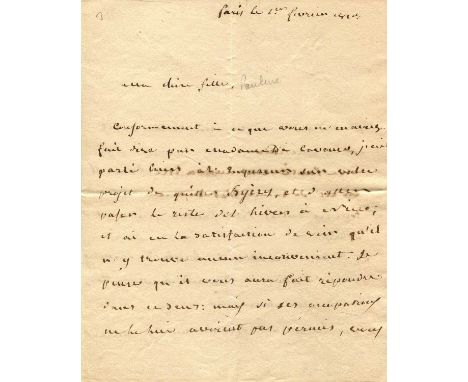 Paris le 1er fevrier
ma chère fille, Pauline
Conformement à ce que vous m'aviez
fait dire par madame De j'ai
parlé hier à l'Empereur sur votre
projet de quitter hyères, et d'aller
passer le reste de l'hiver à Nice;
et ai eu la satisfaction de voir qu'il
n'y trouve aucun inconvenient. Je
pense qu'il vous aura fait répondre
dans ce sens: mais si ses occupations
ne le lui avoient pas permis, vous